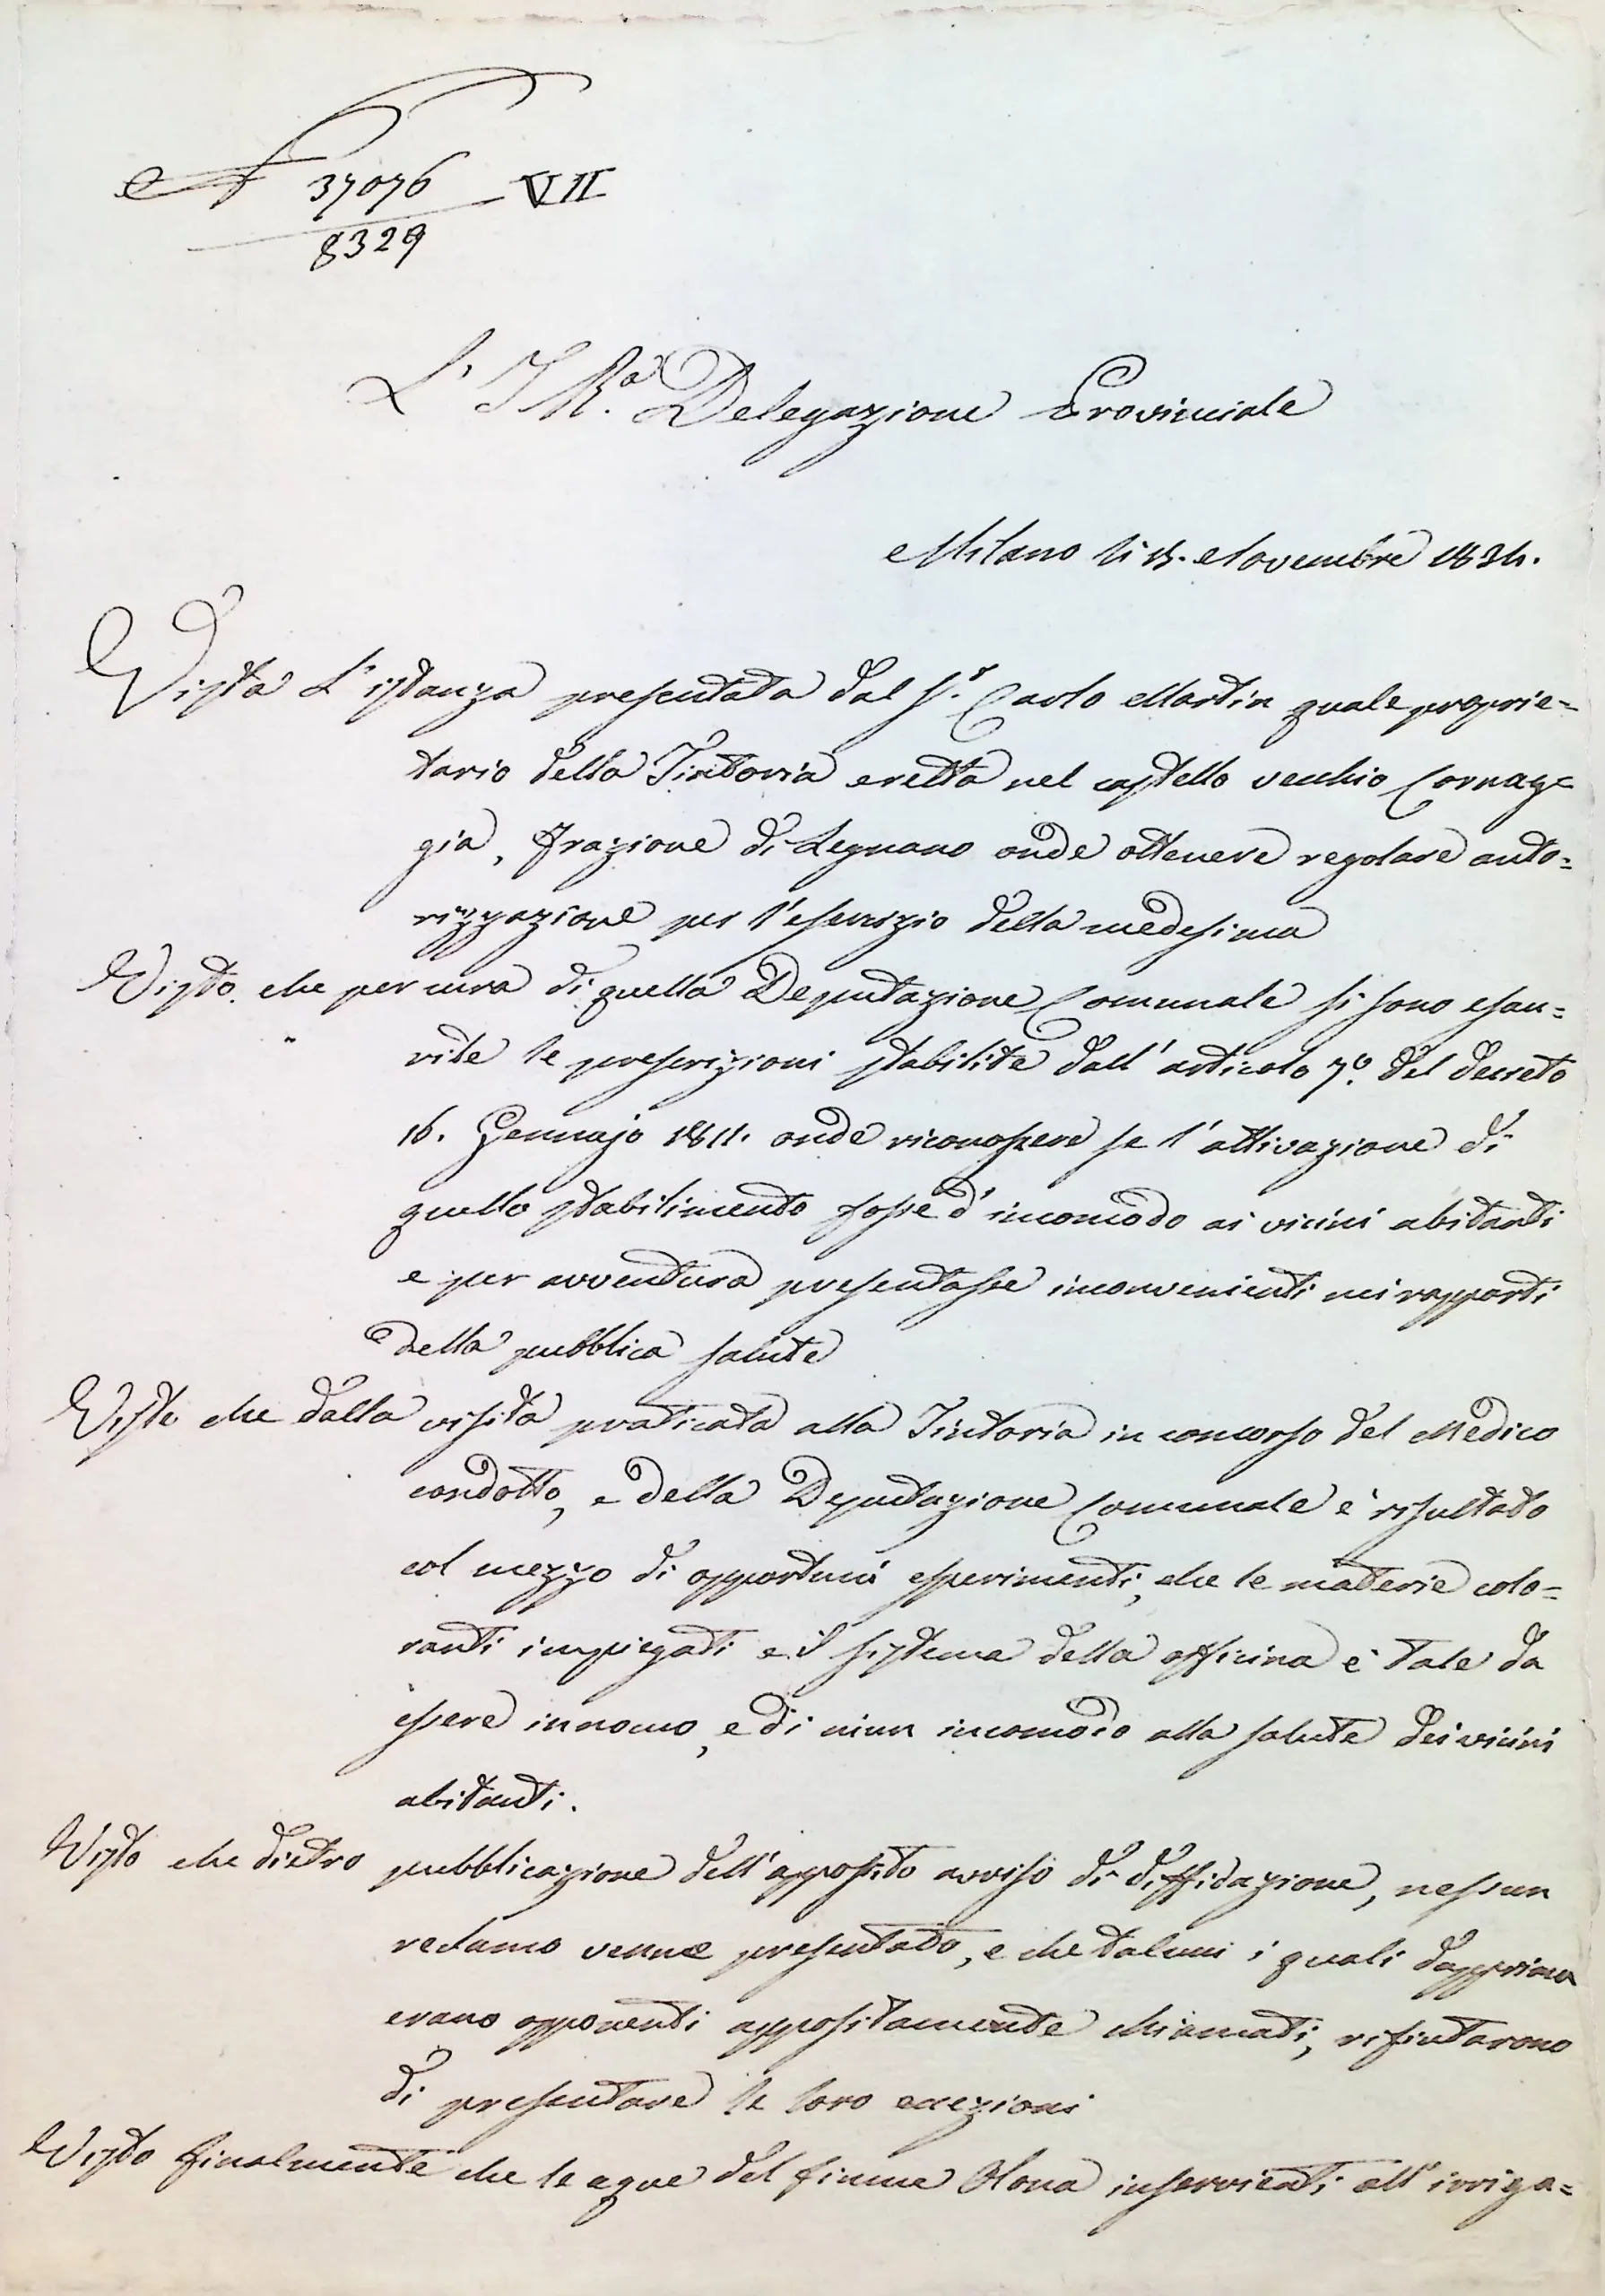 N 37076 VII
8329
L' I. R.a Delegazione Provinciale
Milano li Novembre 1834.
Vista l'istanza presentata dal S.r Carlo Martin quale proprie=
tario della Tintoria eretta nel castello vecchio Cornag=
gia, frazione di Legnano onde ottenere regolare auto=
rizzazione per l'esercizio della medesima
Visto che per cura di quella Deputazione Comunale si sono esau=
rite le prescrizioni stabilite dall'articolo 7.o del decreto
16. Gennajo 1811. onde riconoscere se l'attivazione di
quello stabilimento fosse d'incomodo ai vicini abitanti
e per avventura presentasse inconvenienti nei rapporti
della pubblica salute
Visto che dalla visita praticata alla Tintoria in concorso del Medico
condotto, e della Deputazione Comunale è risultato
col mezzo di opportuni esperimenti, che le materie colo=
ranti impiegati e il sistema della officina è tale da
essere innocuo, e di niun incomodo alla salute dei vicini
abitanti.
Visto che dietro pubblicazione dell'apposito avviso di diffidazione, nessun
reclamo venne presentato, e che taluni i quali dapprima
erano opponenti appositamente chiamati, rifiutarono
di presentare le loro eccezioni
Visto finalmente che le aque del fiume Olona inservienti all'irriga=